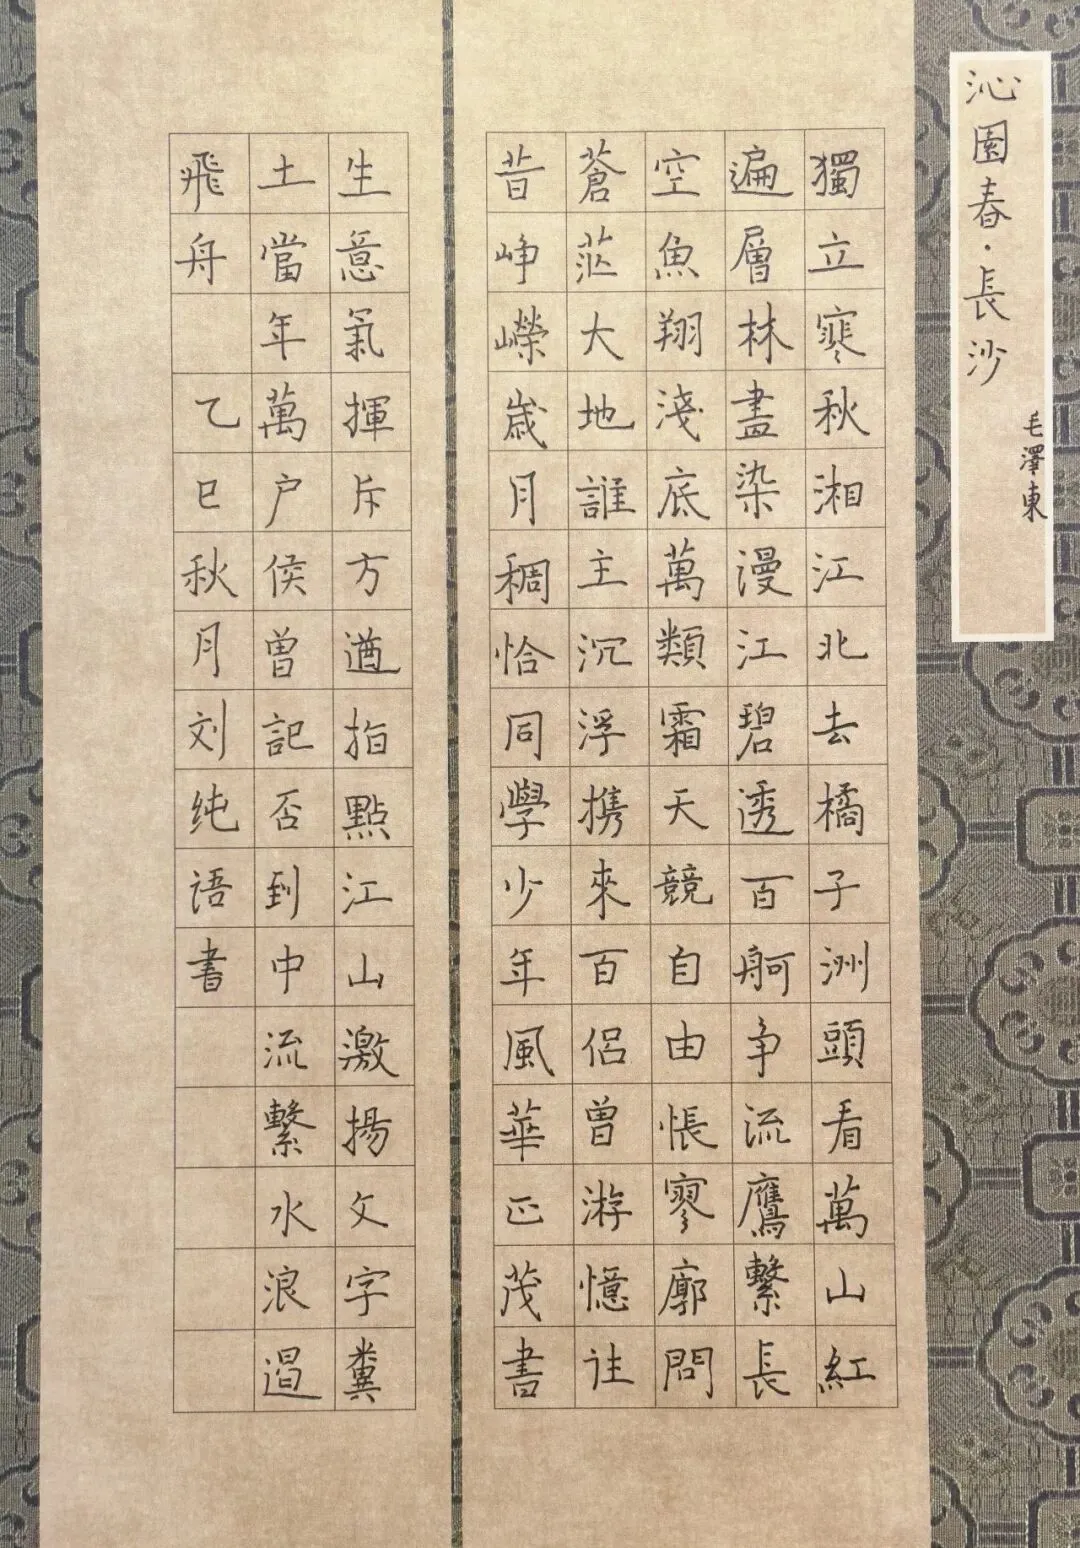 沁園春·長沙
毛澤東
獨立寒秋湘江北去橘子洲頭看萬山紅
遍層林盡染漫江碧透百舸争流鷹繫長
空魚翔淺底萬類霜天競自由悵寥廓問
蒼茫大地誰主沉浮携來百侣曾游憶往
昔峥嶸崴月稠恰同學少年風華正茂書
生意氣揮斥方遒指點江山激揚文字糞
土當年萬户侯曾記否到中流繫水浪遏
飛舟 乙巳秋月刘纯语書